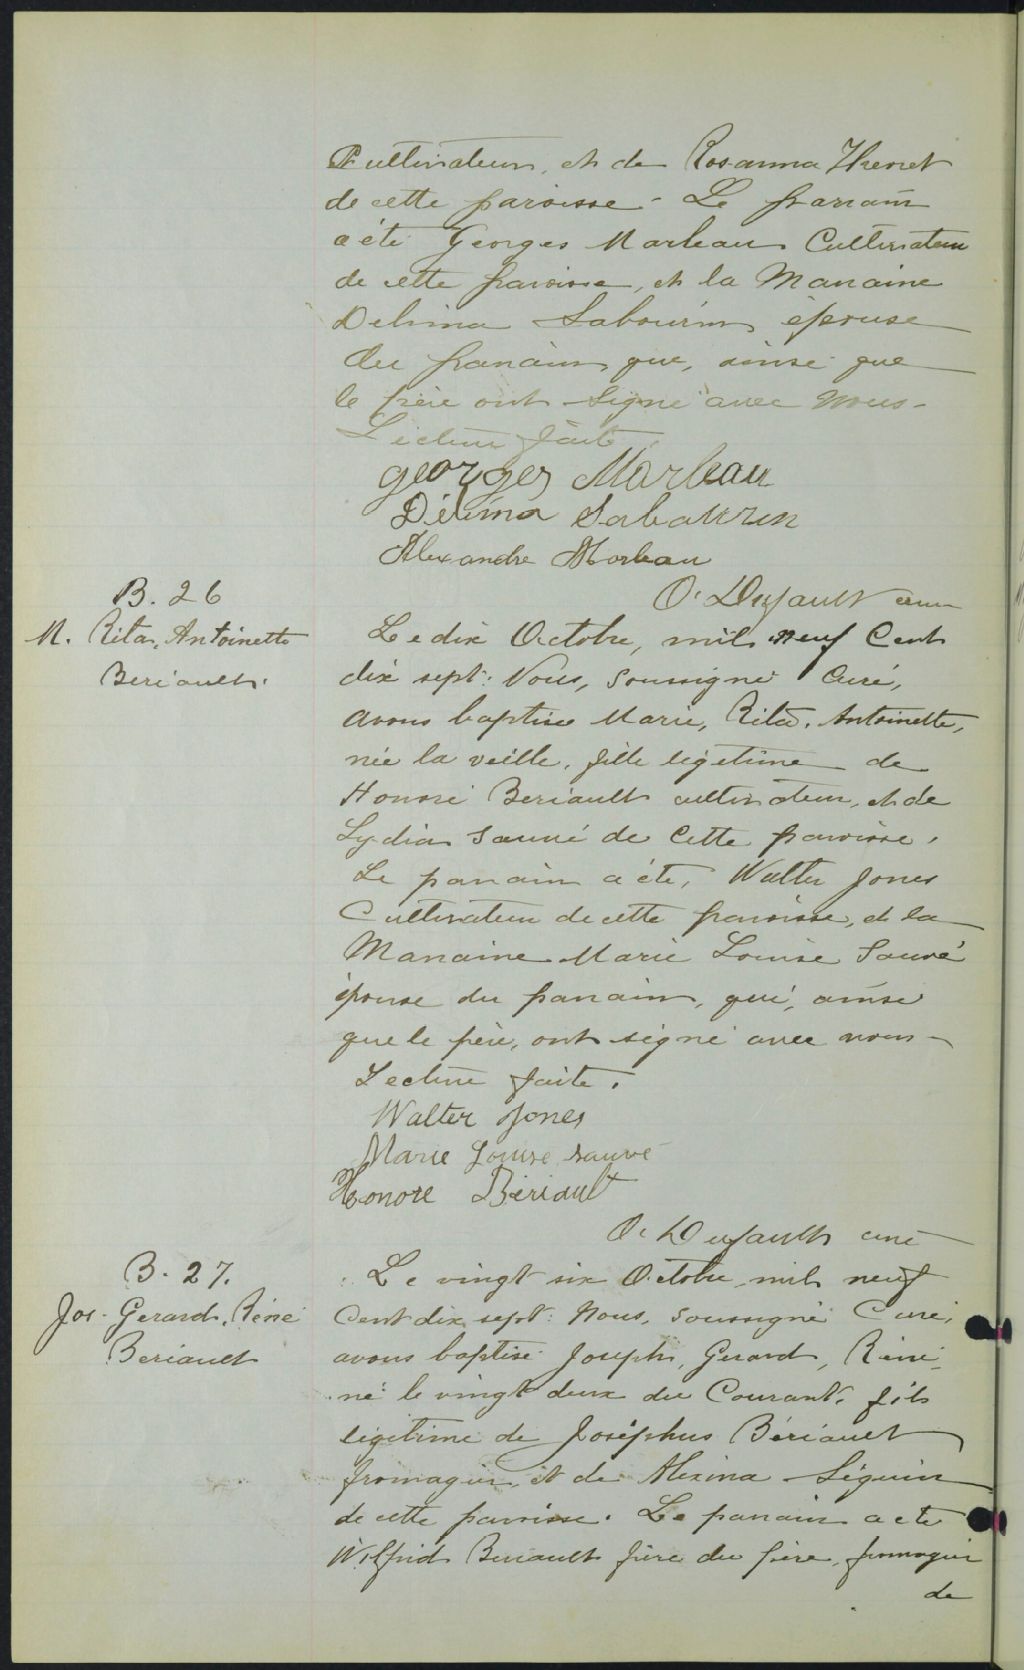 Cultivateur, et de Rosanna
de cette paroisse - Le parrain
a été Georges Marleau Cultivateur
de cette paroisse, et la Marraine
Delima Sabourin épouse
du parrain qui, ainsi que
le père ont signé avec nous -
Lecture faite.
georges Marleau
Délima Sabaurin
Alexandre Marleau
O. Dufault curé
B. 26
M. Rita, Antoinette
Beriault.
Le dix Octobre, mil neuf Cent
dix sept: Nous, soussigné Curé,
avons baptisé Marie, Rita, Antoinette,
née la veille, fille légitime de
Honoré Beriault cultivateur, et de
Lydia Sauvé de cette paroisse.
Le parrain a été, Walter Jones
Cultivateur de cette paroisse, et la
Marraine Marie Louise Sauvé
épouse du parrain, qui, ainsi
que le père, ont signé avec nous -
Lecture faite.
Walter Jones
Marie Louise Sauvé
Honore Bériault
O. Dufault curé
B. 27.
Jos. Gerard, Réné
Beriault
Le vingt six Octobre mil neuf
Cent dix sept: Nous, soussigné Curé,
avons baptisé Joseph, Gerard, Réné,
né le vingt deux du Courant, fils
légitime de Joséphus Bériault
fromager, et de Alexina Séguin
de cette paroisse. Le parrain a été
Wilfrid Beriault frère du père, fromager
de